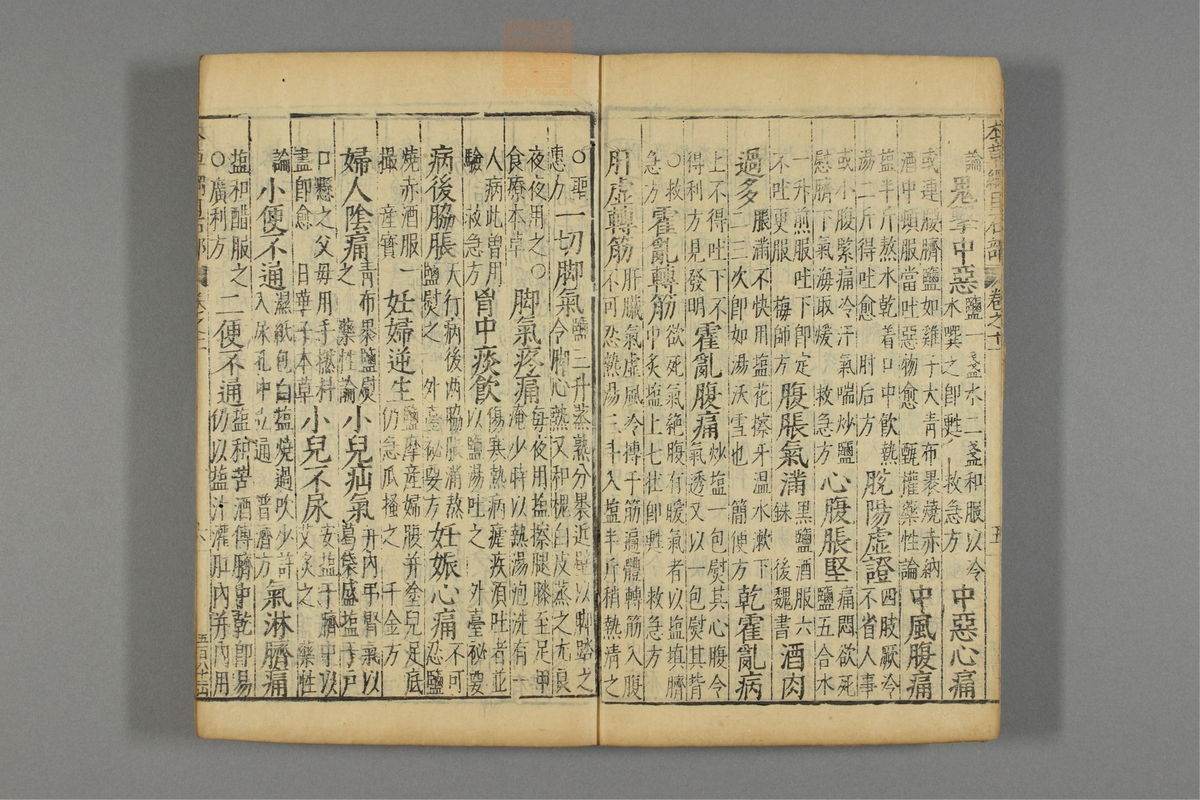 論 鬼擊中惡 鹽一盞水二盞和服以冷水噀之即甦 救急方 中惡心痛
或連腰臍鹽如雞子大青布裹燒赤納酒中頓服當吐惡物愈 甄權藥性論 中風腹痛
塩半斤熬水乾着口中飲熱湯二斤得吐愈 肘后方 脫陽虛證 四肢厥冷不省人事
或小腹緊痛冷汗氣喘炒鹽熨臍下氣海取煖 救急方 心腹脹堅 痛悶欲死鹽五合水
一升煎服吐下即定不吐更服 梅師方 腹脹氣滿 黑鹽酒服六銖 後魏書 酒肉
過多 脹滿不快用塩花擦牙溫水漱下二三次即如湯沃雪也 簡便方 乾霍亂病
上不得吐下不得利方見發明 霍亂腹痛 炒塩一包熨其心腹令氣透又以一包熨其背
○救急方 霍亂轉筋 欲死氣絶腹有暖氣者以塩填臍中炙塩上七壯即甦 救急方
肝虛轉筋 肝臟氣虛風冷搏于筋遍體轉筋入腹不可忍熱湯三斗入塩半斤稍熱漬之
○聖惠方 一切脚氣 鹽三升蒸熟分裹近壁以脚踏之令脚心熱又和槐白皮蒸之尤良
夜夜用之○食療本草 脚氣疼痛 每夜用塩擦腿膝至足甲淹少時以熱湯泡洗有一
人病此曾用驗 救急方 胷中痰飲 傷寒熱病瘧疾須吐者並以鹽湯吐之 外臺祕要
病後脇脹 天行病後兩脇脹滿熬鹽熨之 外臺祕要方 妊娠心痛 不可忍鹽
燒赤酒服一撮 産寶 妊婦逆生 鹽摩産婦腹并塗兒足底仍急瓜搔之 千金方
婦人陰痛 青布裹鹽熨之 藥性論 小兒疝氣 并內吊腎氣以葛袋盛塩于戶
口懸之父母用手撚料盡即愈 日華子本草 小兒不尿 安塩于臍中以艾炙之 藥性
論 小便不通 濕紙包白塩燒過吹少許入尿孔中立通 普濟方 氣淋臍痛
塩和醋服之○廣利方 二便不通 塩和苦酒傅臍中乾即易仍以塩汁灌肛內并內用